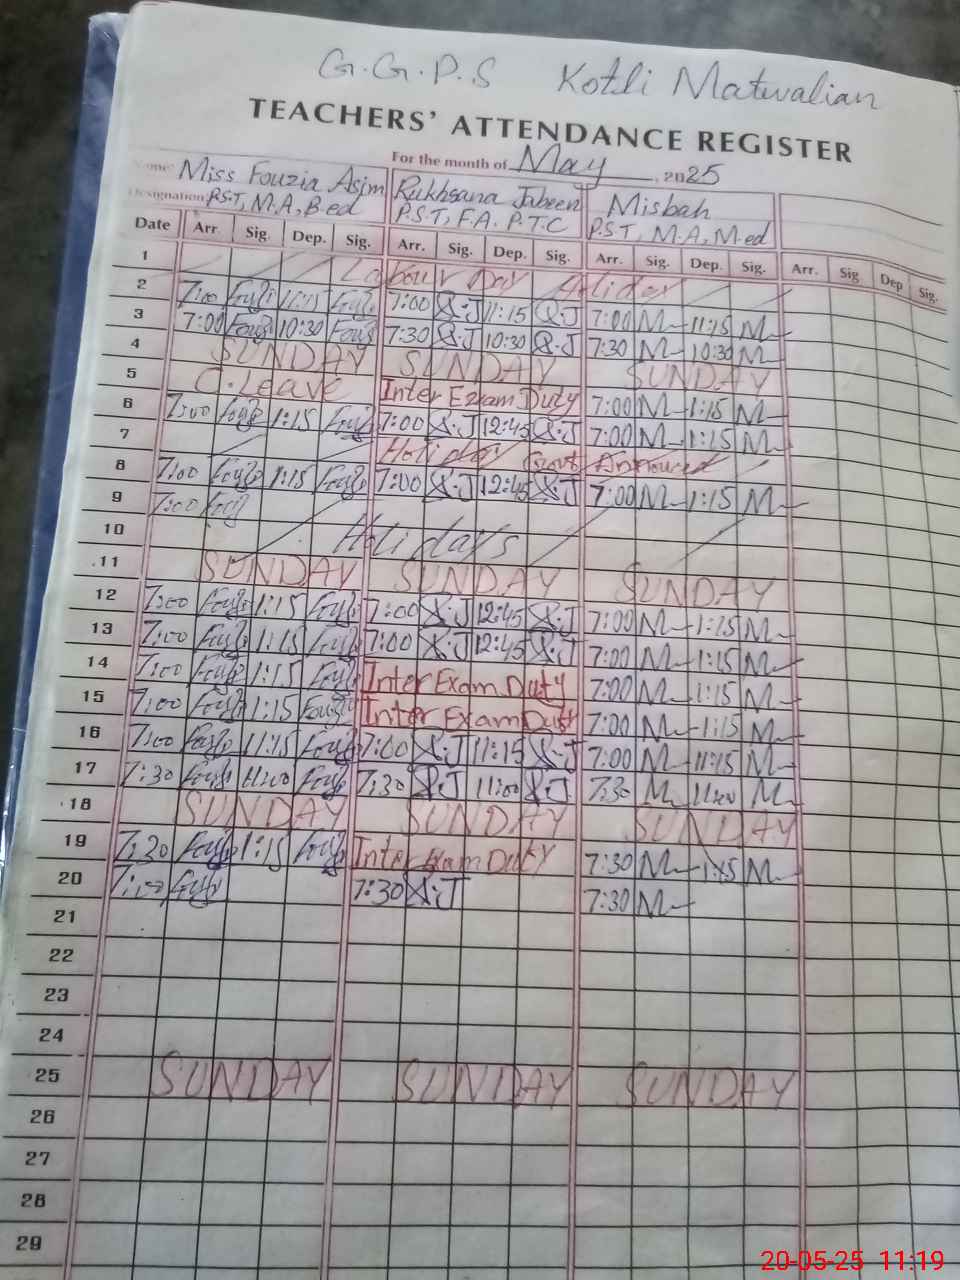 G.G.P.S Kotli Matwalian
TEACHERS' ATTENDANCE REGISTER
For the month of May, 2025
Name: Miss Fouzia Asim Rukhsana Jabeen Misbah
Designation P.S.T, M.A, B.ed P.S.T, F.A. P.T.C P.S.T, M.A, M.ed
Date Arr. Sig. Dep. Sig. Arr. Sig. Dep. Sig. Arr. Sig. Dep. Sig. Arr. Sig. Dep Sig.
1 Labour Day Holiday
2 7:00 11:15 7:00 R.J 11:15 R.J 7:00 M 11:15 M
3 7:00 10:30 7:30 R.J 10:30 R.J 7:30 M 10:30 M
4 SUNDAY SUNDAY SUNDAY
5 C. Leave Inter Exam Duty 7:00 M 1:15 M
6 7:00 1:15 7:00 R.J 12:45 R.J 7:00 M 1:15 M
7 Holiday Govt Announced
8 7:00 1:15 7:00 R.J 12:45 R.J 7:00 M 1:15 M
9 7:00
10 Holidays
11 SUNDAY SUNDAY SUNDAY
12 7:00 1:15 7:00 R.J 12:45 R.J 7:00 M 1:15 M
13 7:00 1:15 7:00 R.J 12:45 R.J 7:00 M 1:15 M
14 7:00 1:15 Inter Exam Duty 7:00 M 1:15 M
15 7:00 1:15 Inter Exam Duty 7:00 M 1:15 M
16 7:00 11:15 7:00 R.J 11:15 R.J 7:00 M 11:15 M
17 7:30 11:00 7:30 R.J 11:00 R.J 7:30 M 11:00 M
18 SUNDAY SUNDAY SUNDAY
19 7:30 1:15 Inter Exam Duty 7:30 M 1:15 M
20 7:30 R.J 7:30 M
21
22
23
24
25 SUNDAY SUNDAY SUNDAY
26
27
28
29
20-05-25 11:19